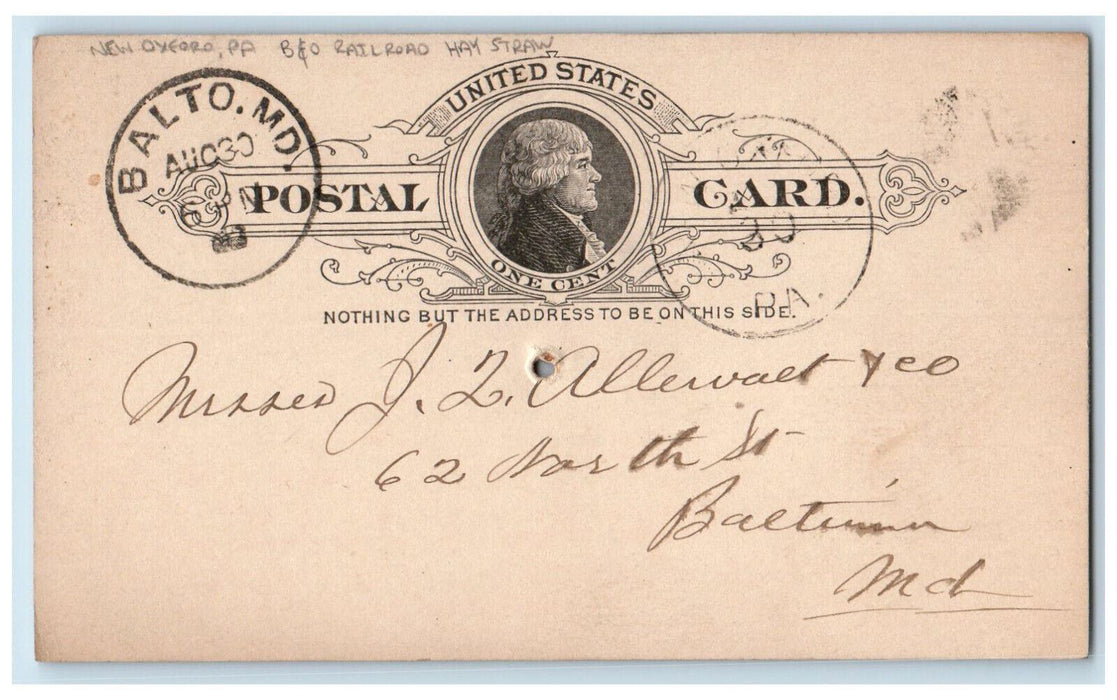 NEW OXFORD, PA B&O RAILROAD HAY STRAW
BALTO. MD.
AUG 30
UNITED STATES
POSTAL CARD.
ONE CENT
30
PA.
NOTHING BUT THE ADDRESS TO BE ON THIS SIDE.
Messrs J. Q. Allewalt & co
62 North St
Baltimore
Md